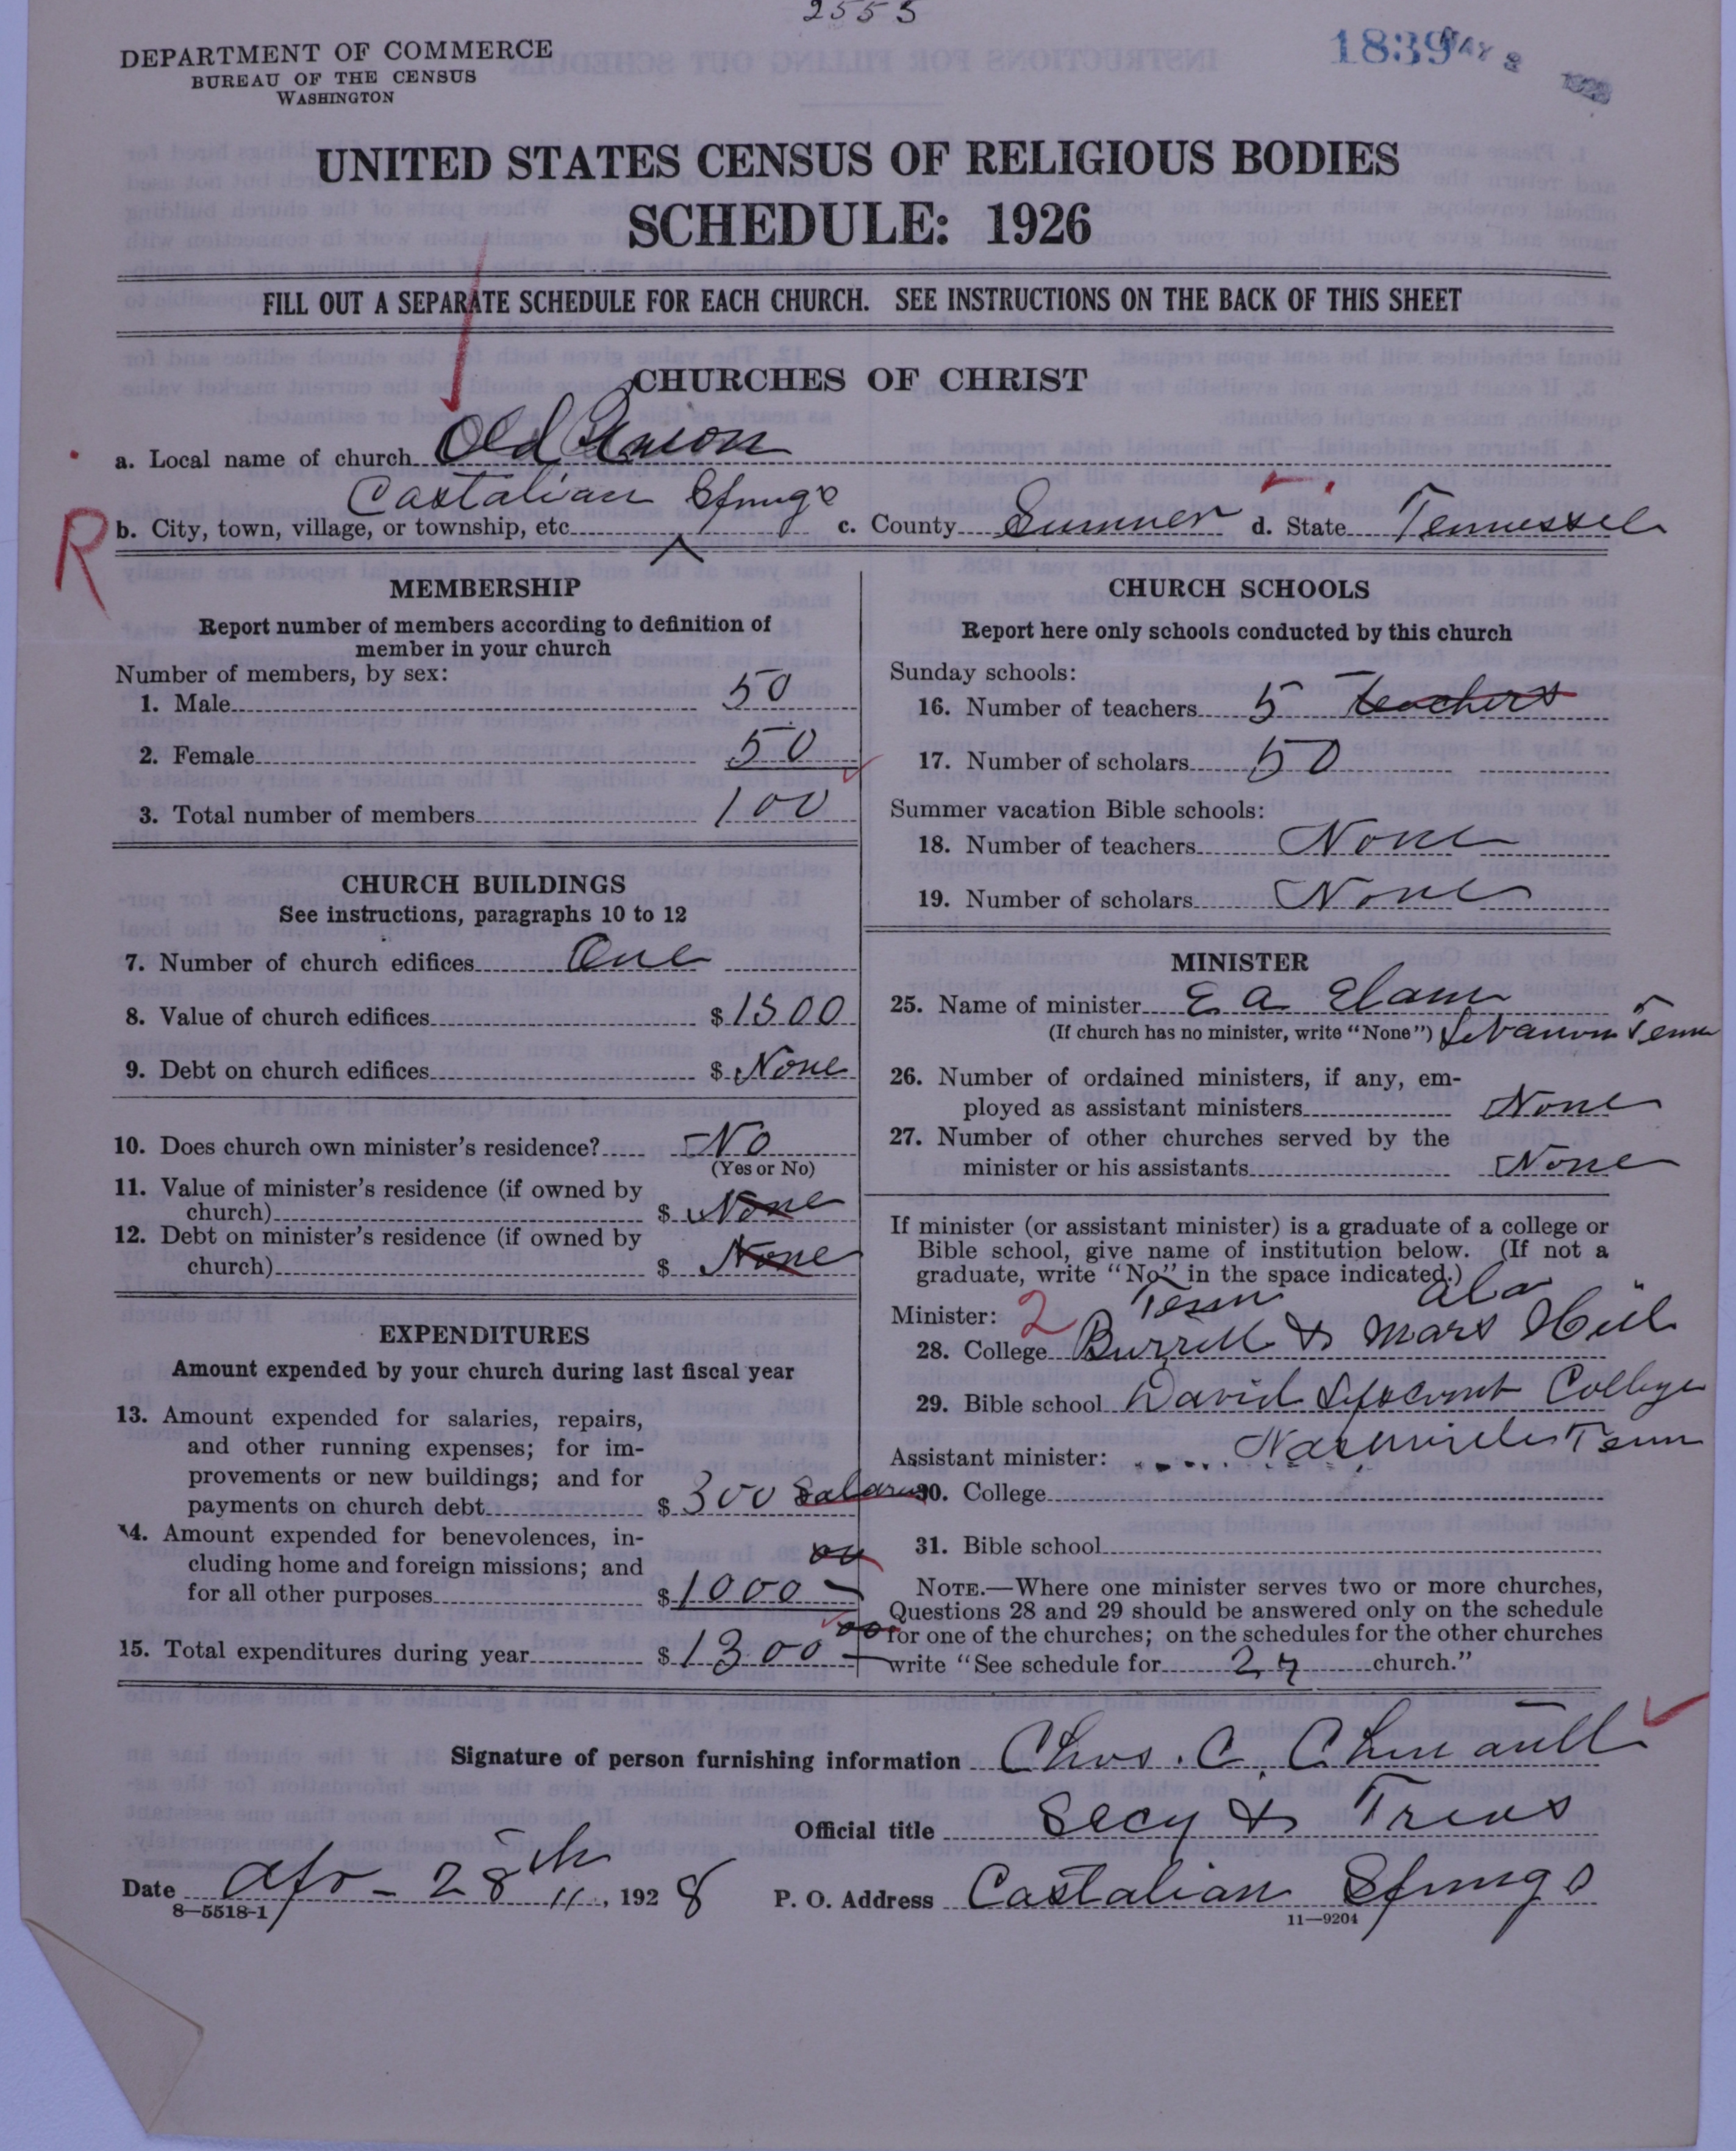 2555
DEPARTMENT OF COMMERCE
BUREAU OF THE CENSUS
WASHINGTON
1839 MAY 2 1928
UNITED STATES CENSUS OF RELIGIOUS BODIES
SCHEDULE: 1926
FILL OUT A SEPARATE SCHEDULE FOR EACH CHURCH. SEE INSTRUCTIONS ON THE BACK OF THIS SHEET
CHURCHES OF CHRIST
a. Local name of church Old Union
Castalian Springs
b. City, town, village, or township, etc. c. County Sumner d. State Tennessee
R
MEMBERSHIP
Report number of members according to definition of
member in your church
Number of members, by sex:
1. Male 50
2. Female 50
3. Total number of members 100
CHURCH BUILDINGS
See instructions, paragraphs 10 to 12
7. Number of church edifices One
8. Value of church edifices $ 1500
9. Debt on church edifices $ None
10. Does church own minister's residence? No
(Yes or No)
11. Value of minister's residence (if owned by
church) $ None
12. Debt on minister's residence (if owned by
church) $ None
EXPENDITURES
Amount expended by your church during last fiscal year
13. Amount expended for salaries, repairs,
and other running expenses; for im-
provements or new buildings; and for
payments on church debt $ 300 Salary
14. Amount expended for benevolences, in-
cluding home and foreign missions; and
for all other purposes $ 1000 00
15. Total expenditures during year $ 1300 00
CHURCH SCHOOLS
Report here only schools conducted by this church
Sunday schools:
16. Number of teachers 5 teachers
17. Number of scholars 50
Summer vacation Bible schools:
18. Number of teachers None
19. Number of scholars None
MINISTER
25. Name of minister E A Elam
(If church has no minister, write "None") Lebanon Tenn
26. Number of ordained ministers, if any, em-
ployed as assistant ministers None
27. Number of other churches served by the
minister or his assistants None
If minister (or assistant minister) is a graduate of a college or
Bible school, give name of institution below. (If not a
graduate, write "No" in the space indicated.)
Minister: 2 Tenn Ala
28. College Burritt & Mars Hill
29. Bible school David Lipscomb College
Assistant minister: Nashville Tenn
30. College
31. Bible school
NOTE.—Where one minister serves two or more churches,
Questions 28 and 29 should be answered only on the schedule
for one of the churches; on the schedules for the other churches
write "See schedule for 27 church."
Signature of person furnishing information Chas. C. Chenault
Official title Secy & Treas
Date Apr - 28th, 1928 P. O. Address Castalian Springs
8—5518-1
11—9204